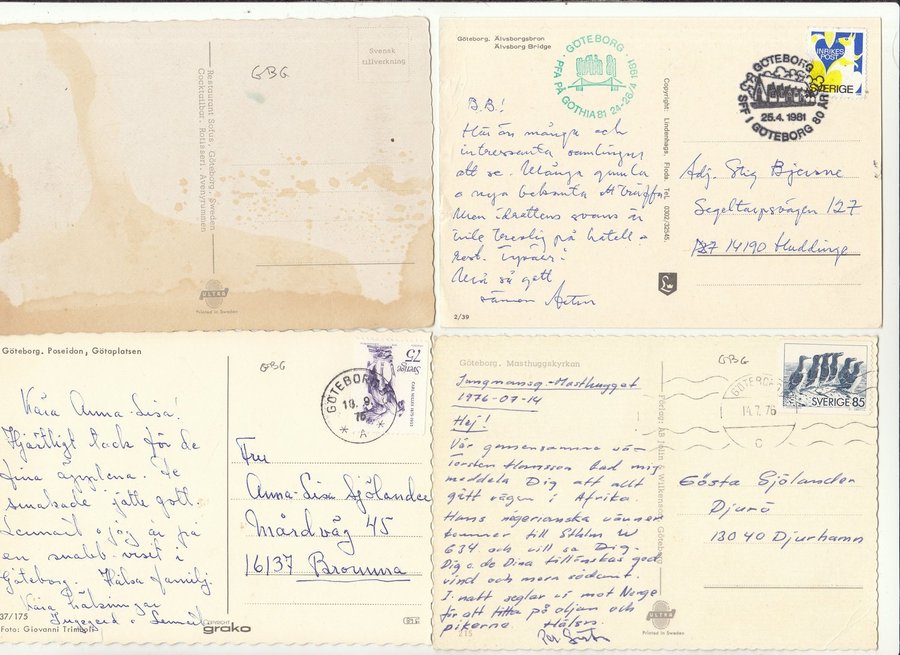 GBG
Svensk
tillverkning
Restaurant Sofus, Göteborg, Sweden
Cocktailbar. Rotisseri. Avenyrummen
ULTRA
Printed in Sweden
Göteborg. Älvsborgsbron
Älvsborg Bridge
GÖTEBORG
1981
PFA PÅ GOTHIA 81 24-26/4
GÖTEBORG
25.4.1981
SPF I GÖTEBORG 80 ÅR
INRIKES
POST
SVERIGE
BB!
Här än många och
intressanta samlingar
att se. Många gamla
o nya bekanta att träffa
Men idrottens svans är
på hotell o
rest. Tyvärr!
Må så gott
Copyright: Lindenhags Floda Tel. 0302/32545
Adj. Stig Bjerne
Segeltorpsvägen 127
14190 Huddinge
2/39
Göteborg. Poseidon, Götaplatsen
GBG
Sverige
75
GÖTEBORG
18.9.
76
* A *
Kära Anna-Lisa!
Hjärtligt tack för de
fina äpplena. De
smakade jätte gott.
Lennart o jag är på
en snabb visit i
Göteborg. Hälsa familj.
Kära hälsningar
Ingegerd o Lennart
Fru
Anna-Lisa Sjölander
Mårdväg 45
16137 Bromma
37/175
Foto: Giovanni Trimboli
COPYRIGHT
grako
Göteborg. Masthuggskyrkan
GBG
Jungmansg-Masthugget
1976-07-14
Hej!
Vår gemensamme vän
Torsten Hansson bad mig
meddela Dig att allt
gått vägen i Afrika.
Hans nigerianska vänner
kommer till Sthlm W
634 och vill se Dig.
Dig o de Dina tillönskas god
vind och mera sådant.
I natt seglar vi mot Norge
för att titta på oljan och
pikerna. Hälsn.
Förlag: AB Jolin & Wilkenson, Göteborg
GÖTEBORG
14.7.76
C
SVERIGE 85
Gösta Sjölander
Djurö
13040 Djurhamn
215
ULTRA
Printed in Sweden